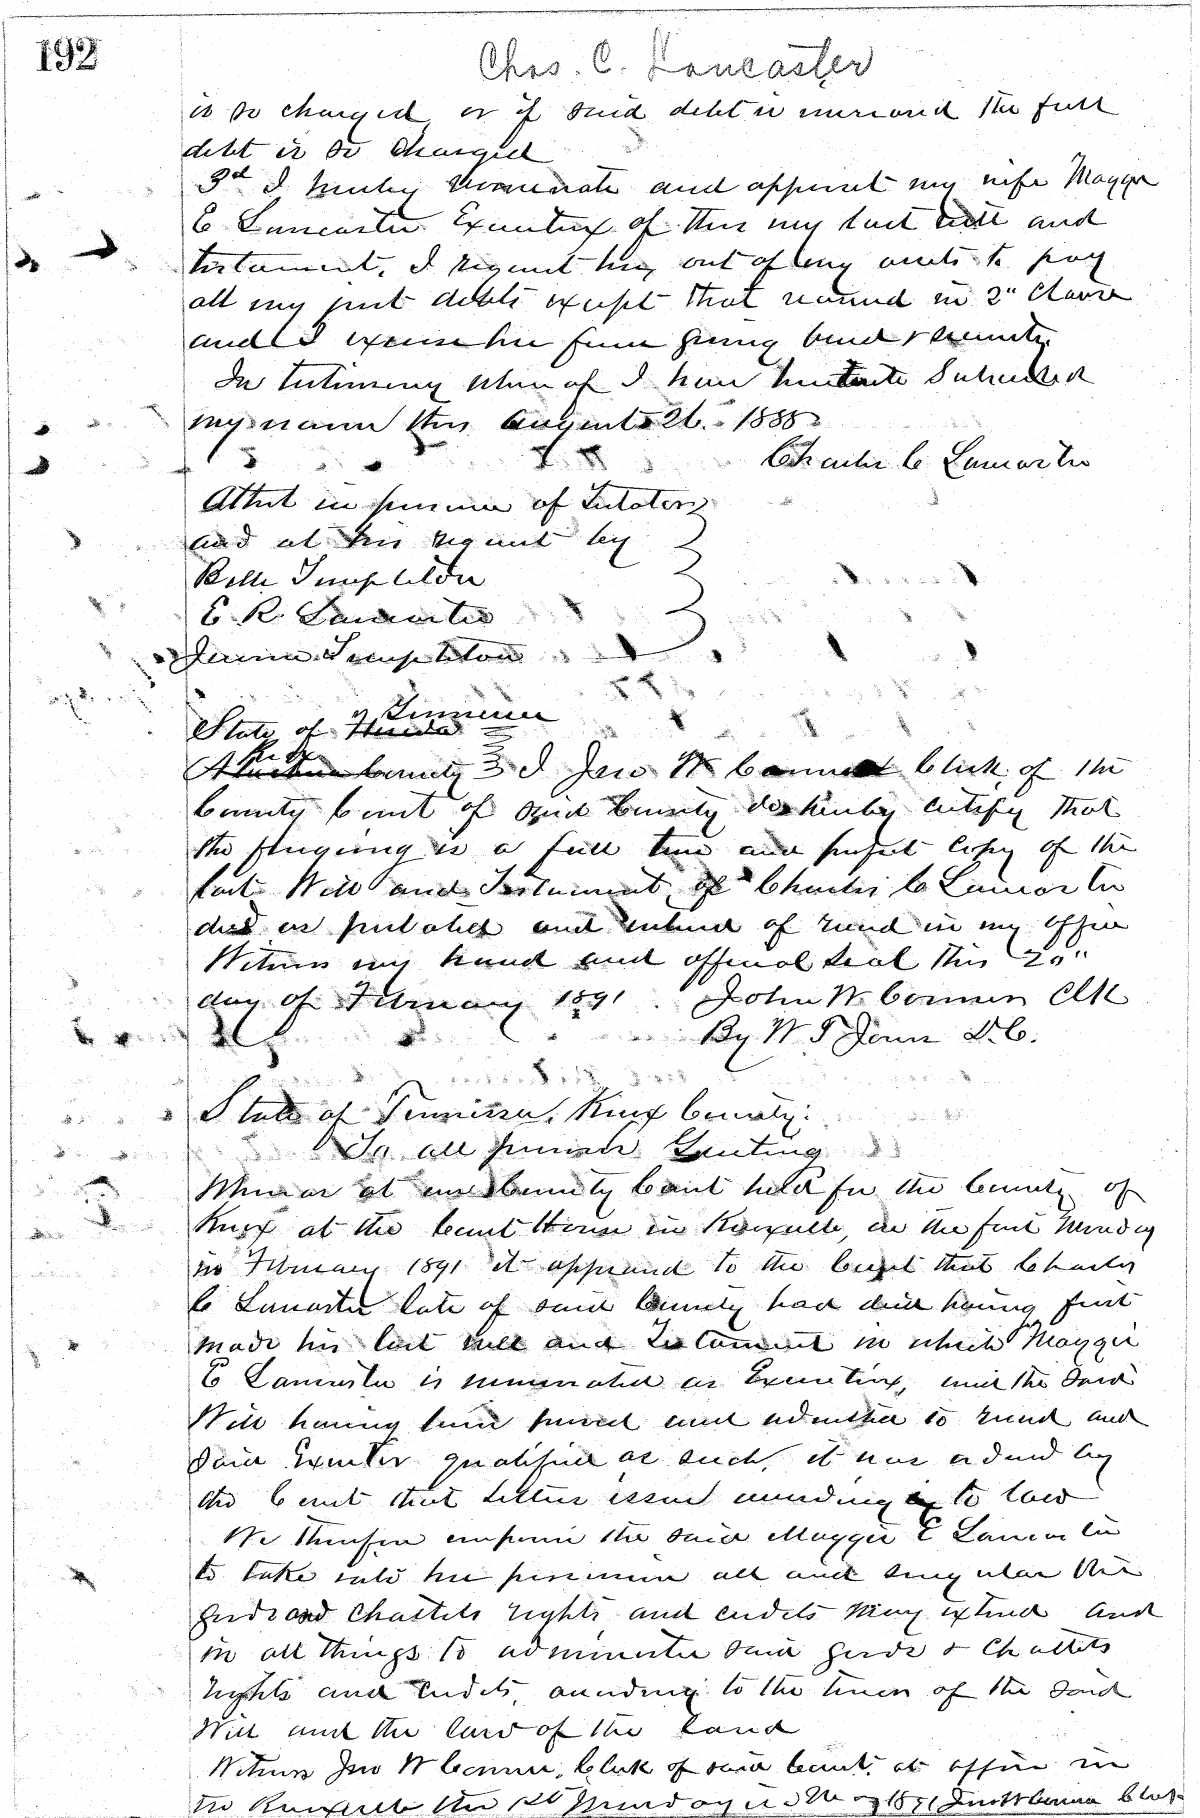 192
Chas. C. Lancaster
is so charged, or if said debt is renewed the full
debt is so charged
3d I hereby nominate and appoint my wife Maggie
E Lancaster Executrix of this my last will and
testament. I request her, out of my assets to pay
all my just debts except that named in 2" Clause
and I excuse her from giving bond & security.
In testimony whereof I have hereunto Subscribed
my name this August 26. 1888
Charles C Lancaster
Attest in presence of Testator
and at his request by
Belle Templeton
E. R. Lancaster
Jennie Templeton
of Tennessee
State of Florida
Knox
Alachua County } I Jno W Conner Clerk of the
County Court of said County do hereby certify that
the foregoing is a full true and perfect Copy of the
last Will and Testament of Charles C Lancaster
decd as probated and entered of record in my office
Witness my hand and official seal this 20"
day of February 1891. John W Conner Clk
By W T Jones D.C.
State of Tennessee, Knox County:
To all persons Greeting
Whereas at our County Court held for the County of
Knox at the Court House in Knoxville, on the first Monday
in February 1891 it appeared to the Court that Charles
C Lancaster late of said County had died having first
made his last will and Testament in which Maggie
E Lancaster is nominated as Executrix, and the said
Will having been proved and admitted to record and
said Executor qualified as such, it was ordered by
the Court that letters issue according to law
We therefore empower the said Maggie E Lancaster
to take into her possession all and singular the
goods and chattels rights, and credits may extend and
in all things to administer said goods & chattels
rights and credits, according to the tenor of the said
Will and the law of the land
Witness Jno W Conner, Clerk of said Court, at office in
Knoxville this 1st Monday in 1891 Jno W Conner Clerk